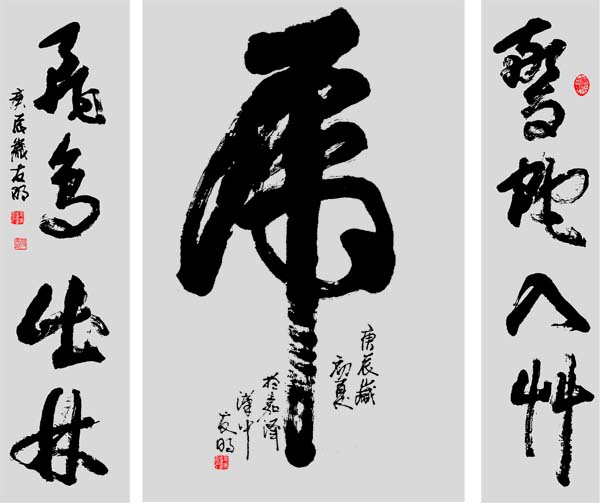 驚蛇入艸
虎
庚辰歲
初夏
於嘉澤
漢中
友明
飛鳥出林
庚辰歲友明